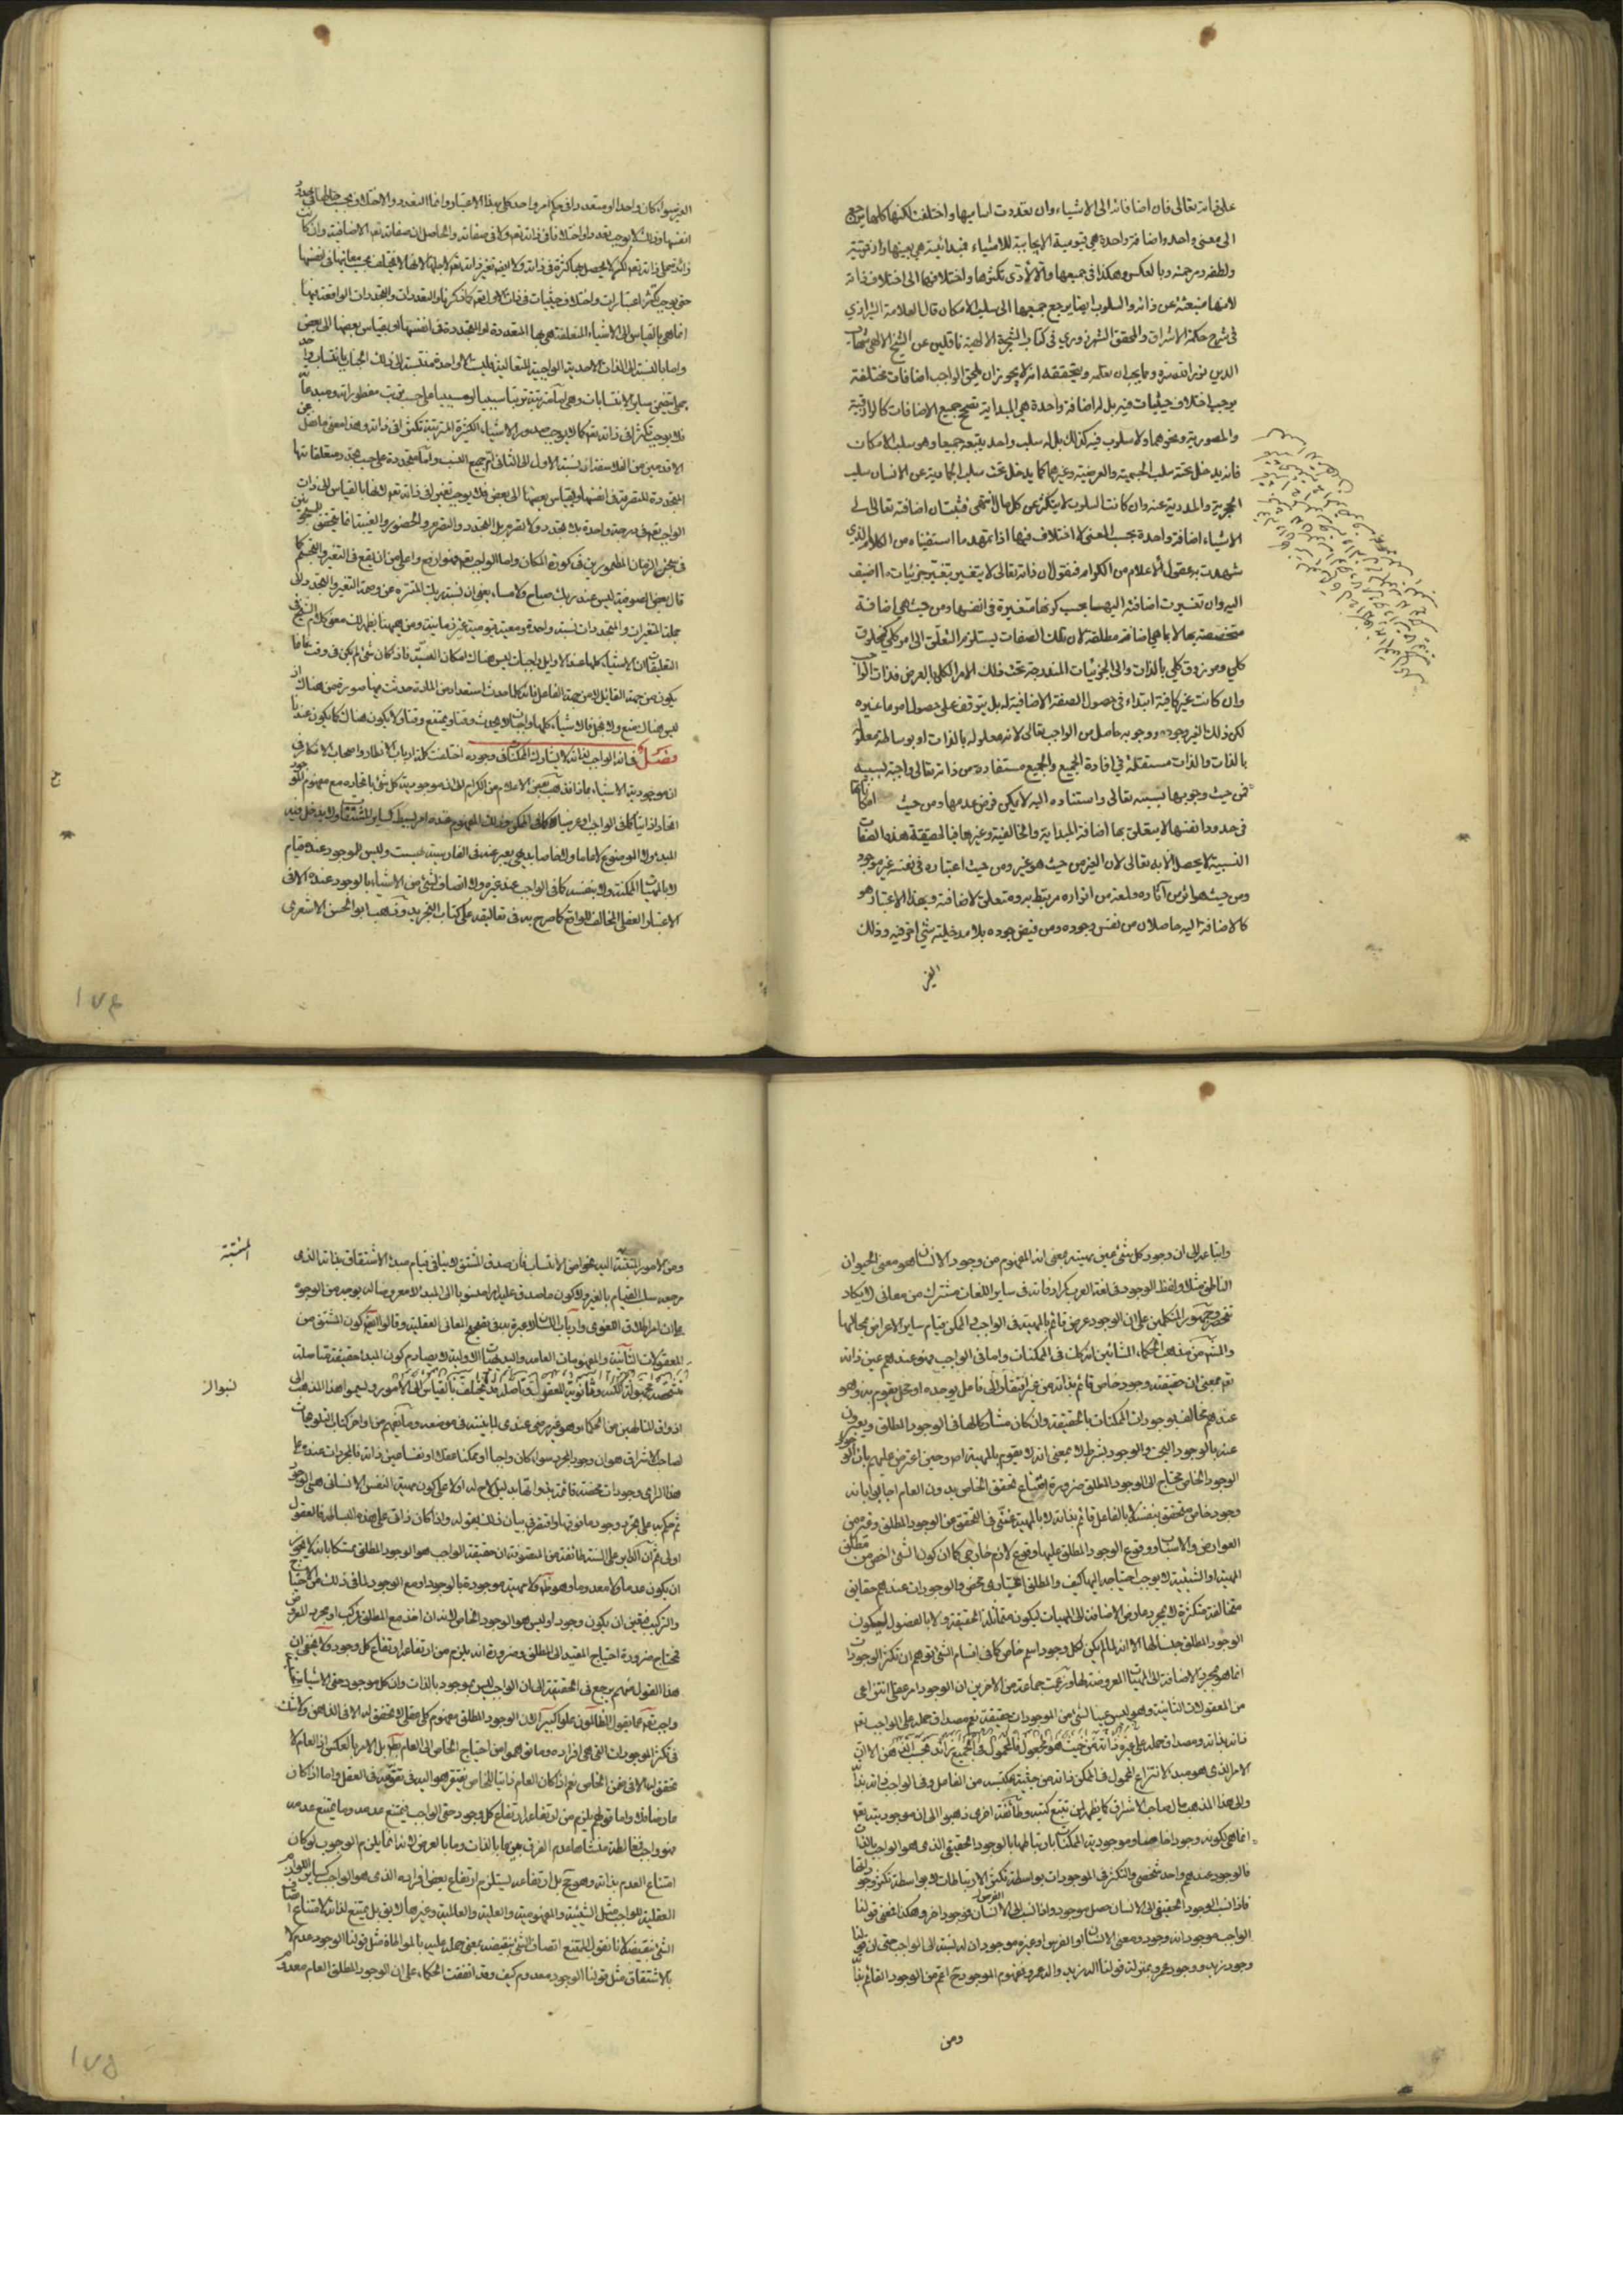 على ذاته تعالى فان اضافاته الى الاشياء وان تعددت اساميها واختلفت لكنها كلها يرجع
الى معنى واحد واضافة واحدة هي قيومية الايجابية للاشياء فمبدائيته هي بعينها رازقيته
ولطفه ورحمته وبالعكس وهكذا في جميعها والا لادى تكثرها واختلافها الى اختلاف ذاته
لانها منبعثة عن ذاته والسلوب ايضا يرجع جميعها الى سلب الامكان قال العلامة الشيرازي
في شرح حكمة الاشراق والمحقق الشهرزوري في كتاب الشجرة الالهية ناقلين عن الشيخ الالهي شهاب
الدين نور الله سره ومما يجب ان نعلمه ونحققه انه لا يجوز ان يلحق الواجب اضافات مختلفة
يوجب اختلاف حيثيات فيه بل له اضافة واحدة هي المبدائية تصحح جميع الاضافات كالرازقية
والمصورية ونحوهما ولا سلوب فيه كذلك بل له سلب واحد يتبعه جميعا وهو سلب الامكان
فانه يدخل تحته سلب الجسمية والعرضية وغيرهما كما يدخل تحت سلب الجمادية عن الانسان سلب
الحجرية والمدرية عنه وان كانت السلوب لا يتكثر على كل حال انتهى فثبت ان اضافته تعالى الى
الاشياء اضافة واحدة بحسب المعنى لا اختلاف فيها اذا تمهد ما استفيناه من الكلام الذي
شهدت به عقول الاعلام من الكرام فنقول ان ذاته تعالى لا يتغير بتغير جزئيات ما اضيف
اليه وان تغيرت اضافته اليها بحسب كونها متغيرة في انفسها ومن حيث هي اضافة
متخصصة بها لا بما هي اضافة مطلقة لان تلك الصفات يستلزم التعلق الى امر كلي كمخلوق
كلي ومرزوق كلي بالذات والى الجزئيات المندرجة تحت ذلك الامر الكلي بالعرض فذات الواجب
وان كانت غير كافية ابتداء في حصول الصفة الاضافية له بل يتوقف على حصول امر ما غيره
لكن ذلك الغير وجوده ووجوبه حاصل من الواجب تعالى لانه معلول له بالذات او بوساطة معلوله
بالذات والذات مستقلة في افادة الجميع والجميع مستفادة من ذاته تعالى واجبة لسببيه
فمن حيث وجوبها بسببه تعالى واستناده اليه لا يمكن فرض عدمها ومن حيث امكاناتها
في حدود انفسها لا يتعلق بها اضافة المبدائية والخالقية وغيرها فبالحقيقة هذه الصفات
النسبية لا يحصل الا به تعالى لان الغير من حيث هو غير ومن حيث اعتباره في نفسه غير موجود
ومن حيث هو اثر من آثاره ولمعة من انواره مرتبط به ومتعلق لاضافته وبهذا الاعتبار هو
كالاضافة اليه حاصلان من نفس وجوده ومن فيض جوده بلا مدخلية شيء آخر فيه وذلك
الغير
الغير سواء كان واحدا او متعددا في حكم امر واحد كلي بهذا الاعتبار واما التعدد والاختلاف بحسب حالها في حدود
انفسها وذلك لا يوجب تعددا واختلافا في ذاته تعالى ولا في صفاته والحاصل ان صفاته تعالى الاضافية وان كانت
زائدة على ذاته تعالى لكن لا يحصل بها كثرة في ذاته ولا يتغير بتغيرها ذاته تعالى
حتى يوجب تكثر اعتبارات واختلاف حيثيات في ذات الاول تعالى كما ذكرنا والتعددات والتجددات الواقعة فيها
انما هي بالقياس الى الاشياء المتعلقة هي بها المتعددة او المتجددة في انفسها او بقياس بعضها الى بعض
واما بالنسبة الى الذات الاحدية الواجبية المتعالية فليست الا واحدة
الاقدمين من الفلاسفة ان نسبة الاول الى الثاني ام جميع النسب
المتجددة المتصرمة في انفسها وبقياس بعضها الى بعض فلا يوجب تغيرا في ذاته تعالى لانها بالقياس الى ذات
الواجب تعالى في درجة واحدة بلا تجدد ولا تصرم بل التجدد والتصرم والحضور والغيبة انما يتحقق للمسجونين
في سجن الزمان المطمورين في كورة المكان واما الواجب تعالى فهو ارفع واعلى من ان يقع في التغير والتجسم كما
قال بعض الصوفية ليس عند ربك صباح ولا مساء يعني ان نسبة ربك المنزه عن وصمة التغير والتجدد الى
جملة المتغيرات والمتجددات نسبة واحدة ومعية قيومية غير زمانية ومن ههنا يظهر لك معنى كلام الشيخ في
التعليقات ان الاشياء كلها عند الاوايل واجبات ليس هناك امكان البتة فاذا كان شيء لم يكن في وقت فانما
يكون من جهة القابل لا من جهة الفاعل فانه كلما حدث استعداد من المادة حدثت فيها صورة من هناك اذ
ليس هناك منع ولا بخل فالاشياء كلها واجبات لا يحدث وقتا ويمتنع وقتا ولا يكون هناك كما يكون عندنا
فصل في ان الواجب لذاته لا يشارك الممكنات في وجوده اختلفت كلمة ارباب الانظار واصحاب الافكار في
ان موجودية الاشياء بماذا فذهب بعض الاعلام من الكرام الى ان موجودية كل شيء باتحاده مع مفهوم الموجود
اتحادا ذاتيا كما في الواجب او عرضيا كما في الممكن وذلك المفهوم عنده امر بسيط كساير المشتقات لا يدخل فيه
المبدء ولا الموضوع لا عاما ولا خاصا بديهي يعبر عنه في الفارسية بهست وليس للوجود عنده قيام
لا بالمهيات الممكنة ولا بنفسه كما في الواجب عند غيره ولا اتصاف لشيء من الاشياء بالوجود عنده الا في
الاعتبار العقلي المخالف للواقع كما صرح به في تعاليقه على كتاب التجريد وذهب ابو الحسن الاشعري
١٧٤
واتباعه الى ان وجود كل شيء عين مهيته بمعنى ان المفهوم من وجود الانسان هو معنى الحيوان
الناطق مثلا ولفظ الوجود في لغة العرب كمرادفاته في ساير اللغات مشترك من معاني لا يكاد
تنحصر وجمهور المتكلمين على ان الوجود عرض قائم بالمهية في الواجب والممكن كقيام ساير الاعراض بمحالها
والمشهور من مذهب الحكماء المشائين انه كذلك في الممكنات واما في الواجب فهو عندهم عين ذاته
تعالى بمعنى ان حقيقته وجود خاص قائم بذاته من غير افتقار الى فاعل يوجده او محل يقوم به وهو
عندهم مخالف لوجودات الممكنات بالحقيقة وان كان مشاركا لها في الوجود المطلق ويعبرون
عنه بالوجود البحت والوجود بشرط لا بمعنى انه لا يقوم بالمهية اصلا وحين اعترض عليهم بان
الوجود الخاص محتاج الى الوجود المطلق ضرورة امتناع تحقق الخاص بدون العام اجابوا بانه
وجود خاص متحقق بنفسه لا بالفاعل قائم بذاته لا بالمهية غني في التحقق من الوجود المطلق وغيره من
العوارض والاسباب ووقوع الوجود المطلق عليها وقوع لازم خارجي كما ان كون الشيء اخص من مطلق
المهية او الشيئية لا يوجب احتياجه اليها كيف والمطلق اعتباري محض والوجودات عندهم حقايق
متخالفة متكثرة لا بمجرد عارض الاضافة الى المهيات ليكون متماثلة الحقيقة ولا بالفصول ليكون
الوجود المطلق جنسا لها الا انه لما لم يكن لكل وجود اسم خاص كما في اقسام الشيء توهم ان تكثر الوجودات
انما هو بمجرد الاضافة الى المهيات المعروضة لها وزعمت جماعة من الآخرين ان الوجود امر عقلي انتزاعي
من المعقولات الثانية وهو ليس عينا لشيء من الموجودات حقيقة نعم مصداق حمله على الواجب تعالى
ذاته بذاته ومصداق حمله على غيره ذاته من حيث هو مجعول فالمحمول في الجميع زائد بحسب الذهن الا ان
الامر الذي هو مبدء لانتزاع المحمول في الممكن ذاته من حيثية مكتسبة من الفاعل وفي الواجب ذاته بذاته
والى هذا المذهب مال صاحب الاشراق كما يظهر لمن تتبع كتبه وطائفة اخرى ذهبوا الى ان موجوديته تعالى
انما هي بكونه وجودا خاصا وموجودية الممكنات بارتباطها بالوجود الحقيقي الذي هو الواجب بالذات
فالوجود عندهم واحد شخصي والتكثر في الموجودات بواسطة تكثر الارتباطات لا بواسطة تكثر وجوداتها
فاذا نسب الوجود الحقيقي الى الانسان حصل موجود واذا نسب الى الفرس فموجود آخر وهكذا فمعنى قولنا
الواجب موجود انه وجود ومعنى الانسان او الفرس او غيره موجود ان له نسبة الى الواجب حتى ان قولنا
وجود زيد ووجود عمرو بمنزلة قولنا اله زيد واله عمرو فمفهوم الموجود اعم من الوجود القائم بذاته
ومن
المنتسبة
ومن الامور المنتسبة اليه نحوا من الانتساب فان صدق المشتق لا ينافي قيام مبدء الاشتقاق بذاته الذي
مرجعه سلب القيام بالغير ولا كون ما صدق عليه امرا منسوبا الى المبدء لا معروضا له بوجه من الوجوه
على ان امر اطلاق اللغوي وارباب اللسان لا عبرة به في تصحيح المعاني العقلية وقالوا كون المشتق من
المعقولات الثانية والمفهومات العامة والبديهيات الاولية لا يصادم كون المبدء حقيقة متاصلة
متشخصة مجهولة الكنه وثانوية المعقول وتاصله قد يختلف بالقياس الى الامور ونسبوا هذا المذهب الى
اذواق المتألهين من الحكماء وهو غير مرضي عندي لما بينته في موضعه وما يفهم من اواخر كتاب التلويحات
لصاحب الاشراق هو ان وجود المجرد سواء كان واجبا او ممكنا عقلا او نفسا عين ذاته فالمجردات عنده على
هذا الراي وجودات محضة قائمة بذواتها بدليل لاح له اولا على كون مهية النفس الانسانية هي الوجود
ثم حكم به على مجرد وجود ما فوقها وافتقر في بيان ذلك بقوله واذا كان ذاتي على هذه البساطة فالعقول
اولى ثم ان الدائر على السنة طائفة من المتصوفة ان حقيقة الواجب هو الوجود المطلق تمسكا بانه لا يجوز
ان يكون عدما ولا معدوما وهو ظاهر ولا مهية موجودة بالوجود او مع الوجود لما في ذلك من الاحتياج
والتركيب فتعين ان يكون وجودا وليس هو الوجود الخاص لانه ان اخذ مع المطلق فمركب او مجرد المعروض
فمحتاج ضرورة احتياج المقيد الى المطلق وضرورة انه يلزم من ارتفاعه ارتفاع كل وجود ولا يخفى ان
هذا القول منهم يرجع في الحقيقة الى ان الواجب ليس بموجود بالذات وان كل موجود حتى
واجب تعالى عما يقول الظالمون علوا كبيرا لان الوجود المطلق مفهوم كلي عقلي لا تحقق له الا في الذهن ولا شك
في تكثر الموجودات التي هي افراده وما توهموا من احتياج الخاص الى العام بط بل الامر بالعكس اذ العام لا
تحقق له الا في ضمن الخاص نعم اذا كان العام ذاتيا للخاص يفتقر هو اليه في تقومه في العقل واما اذا كان
عارضا فلا واما قولهم يلزم من ارتفاعه ارتفاع كل وجود حتى الواجب فيمتنع عدمه وما يمتنع عدمه
فهو واجب فمغالطة منشاها عدم الفرق بين ما بالذات وما بالعرض لانه انما يلزم الوجوب لو كان
امتناع العدم بذاته وهو مح بل ارتفاعه يستلزم ارتفاع بعض افراده الذي هو الواجب كساير اللوازم
العقلية للواجب مثل الشيئية والمفهومية والعلية والعالمية وغيرها لا يق بل يمتنع لذاته لامتناع اتصاف
الشيء بنقيضه لانا نقول الممتنع اتصاف الشيء بنقيضه بمعنى حمله عليه بالمواطاة مثل قولنا الوجود عدم لا
بالاشتقاق مثل قولنا الوجود معدوم كيف وقد اتفقت الحكماء على ان الوجود المطلق العام معدوم
١٧٥